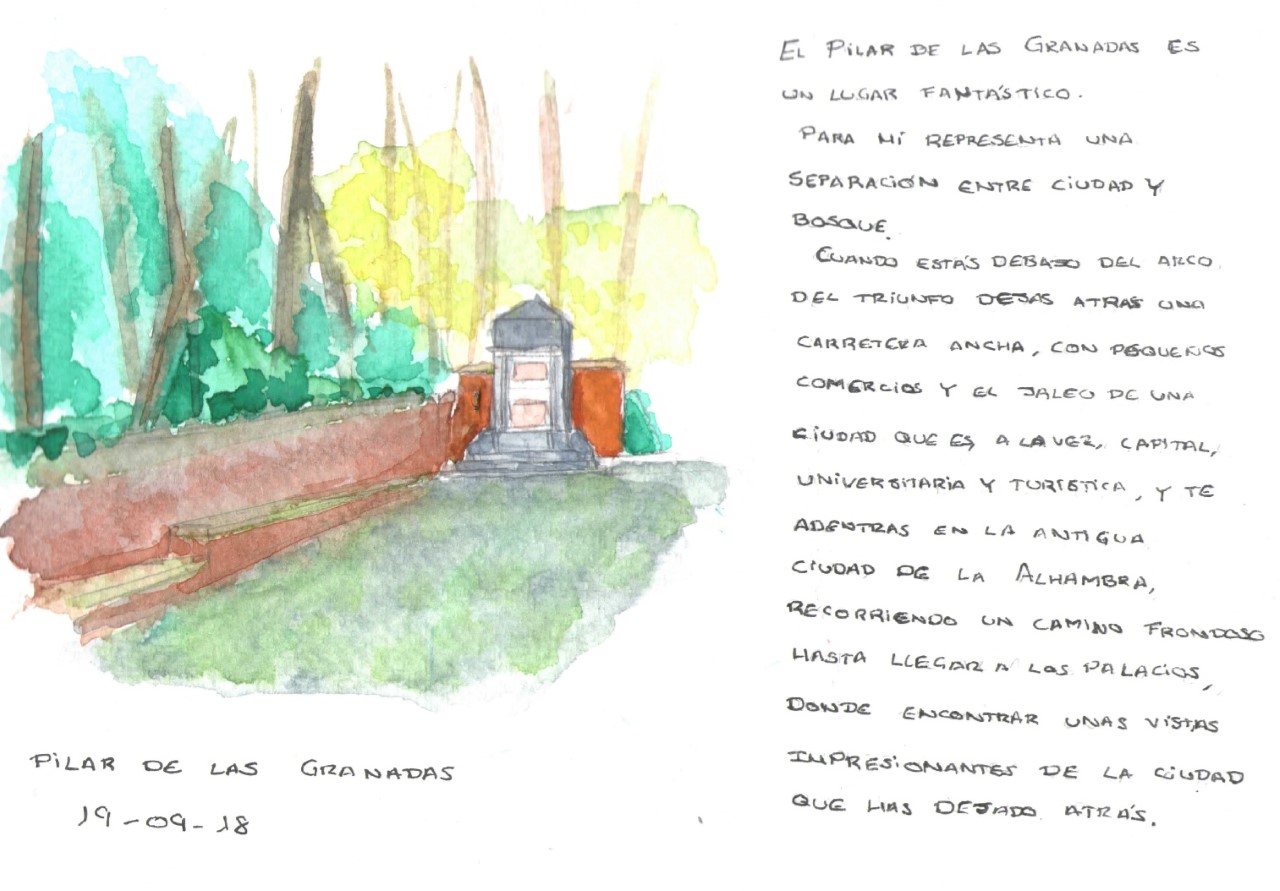 EL PILAR DE LAS GRANADAS ES
UN LUGAR FANTÁSTICO.
PARA MÍ REPRESENTA UNA
SEPARACIÓN ENTRE CIUDAD Y
BOSQUE.
CUANDO ESTÁS DEBAJO DEL ARCO
DEL TRIUNFO DEJAS ATRAS UNA
CARRETERA ANCHA, CON PEQUEÑOS
COMERCIOS Y EL JALEO DE UNA
CIUDAD QUE ES, A LA VEZ, CAPITAL,
UNIVERSITARIA Y TURÍSTICA, Y TE
ADENTRAS EN LA ANTIGUA
CIUDAD DE LA ALHAMBRA,
RECORRIENDO UN CAMINO FRONDOSO
HASTA LLEGAR A LOS PALACIOS,
DONDE ENCONTRAR UNAS VISTAS
IMPRESIONANTES DE LA CIUDAD
QUE HAS DEJADO ATRÁS.
PILAR DE LAS GRANADAS
19-09-18